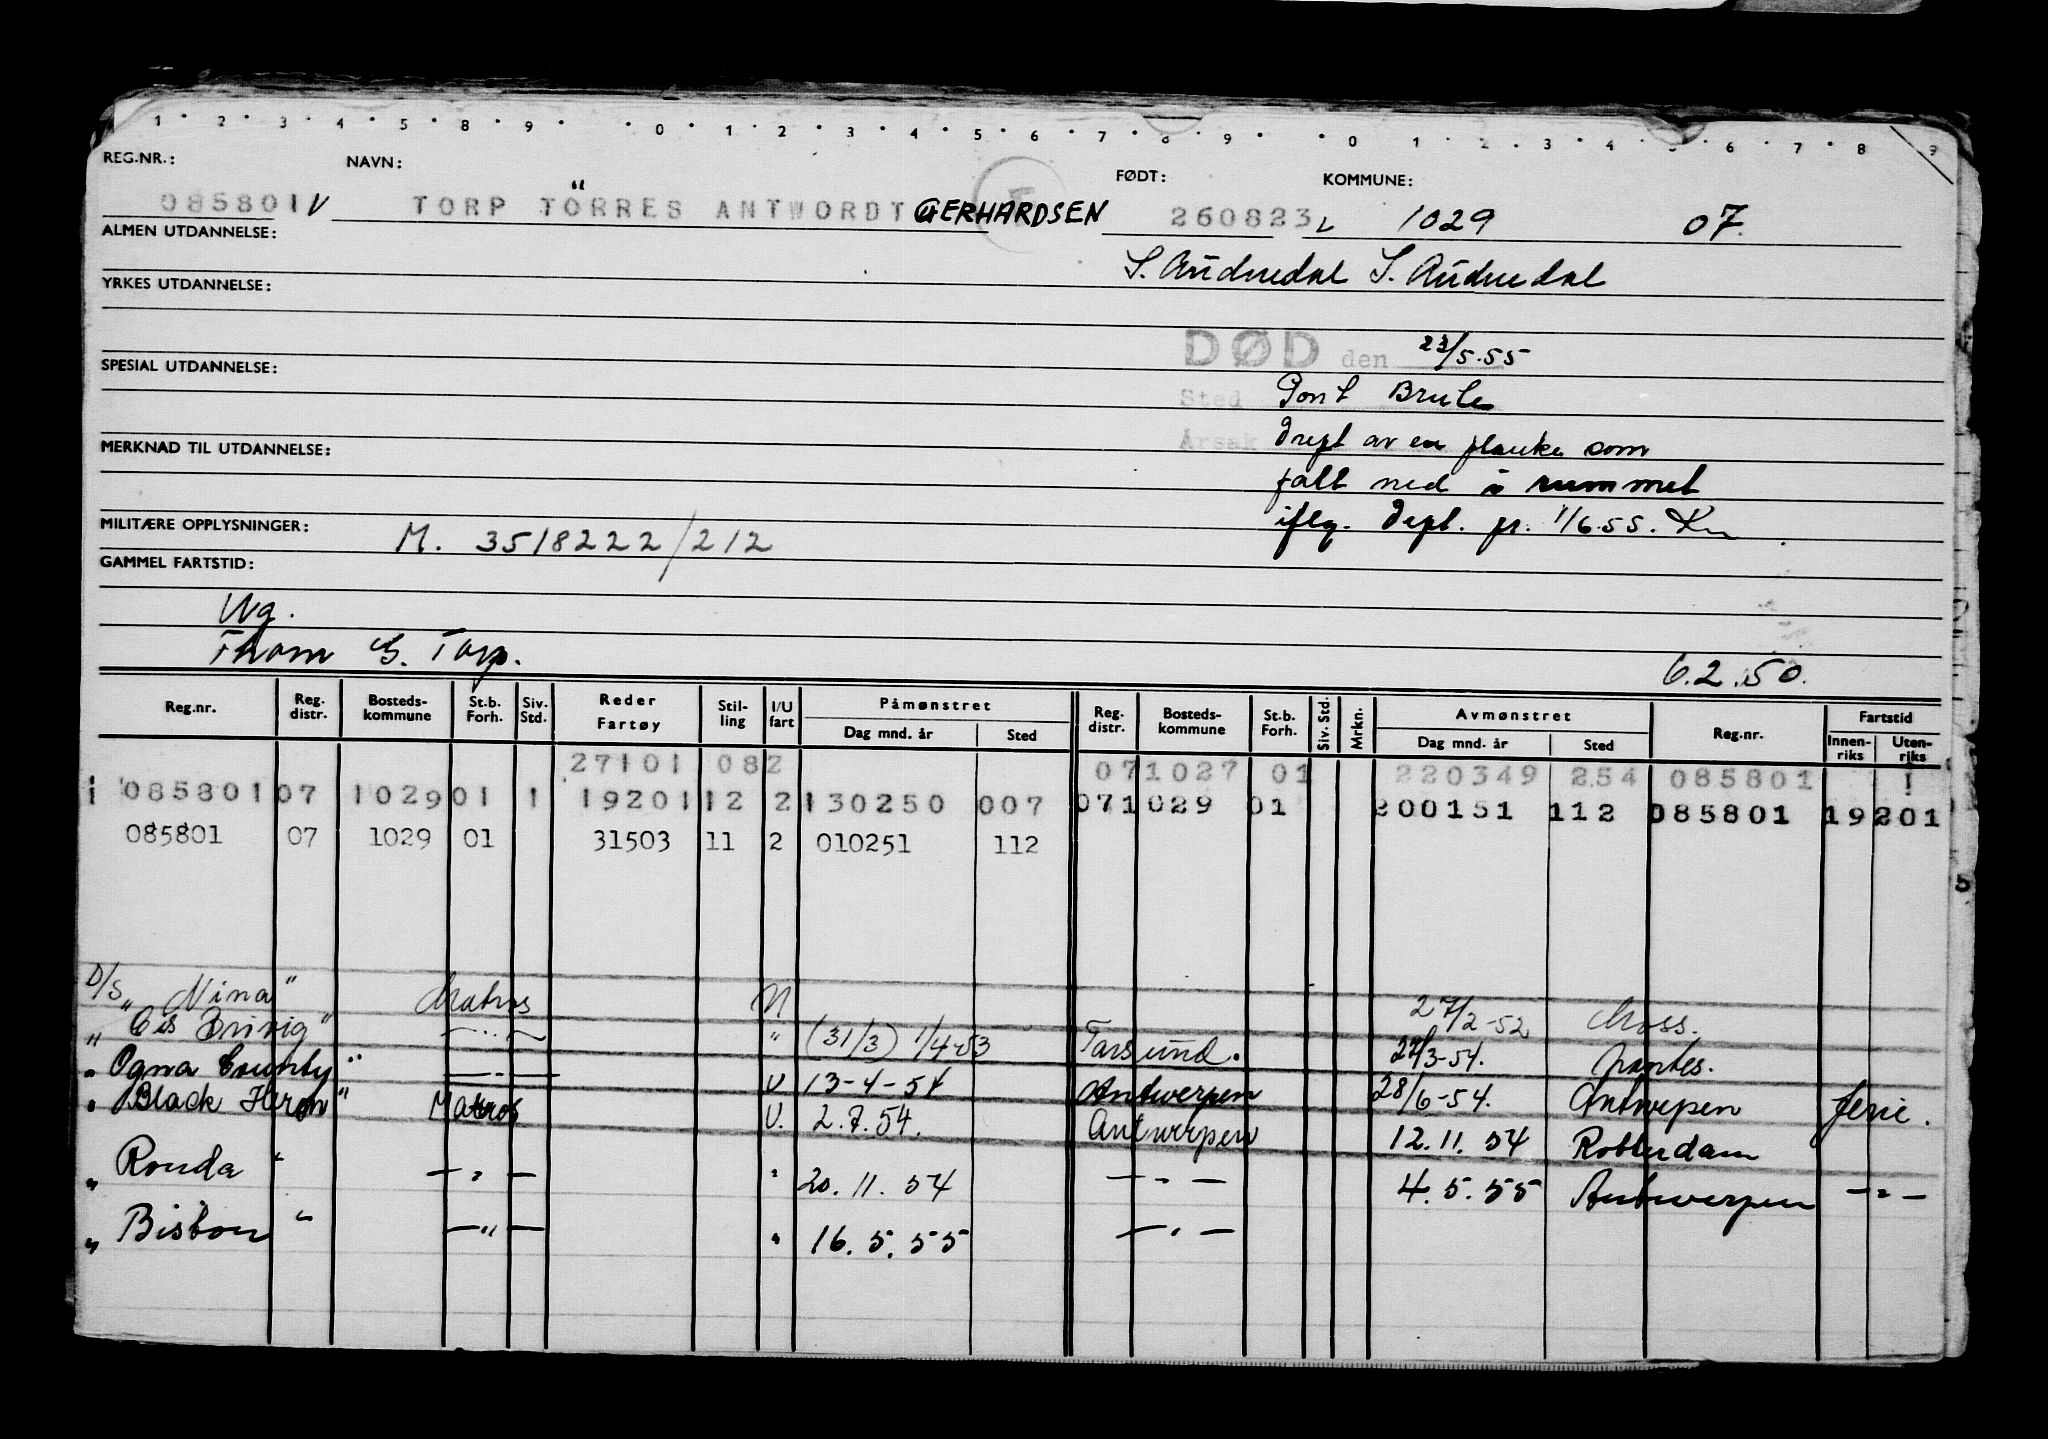 1 · 2 · 3 · 4 · 5 · 8 · 9 · · 0 · 1 · 2 · 3 · 4 · 5 · 6 · 7 · 8 · 9 · · 0 · 1 · 2 · 3 · 4 · 5 · 6 · 7 · 8 · 9
REG.NR.: NAVN: FØDT: KOMMUNE:
085801 V TORP TÖRRES ANTWORDT GERHARDSEN 260823 1029 07.
ALMEN UTDANNELSE:
S. Audnedal S. Audnedal
YRKES UTDANNELSE:
DØD den 23/5.55
SPESIAL UTDANNELSE:
Sted Pont Brule
Årsak drept av en planke som
MERKNAD TIL UTDANNELSE:
falt ned i rummet
MILITÆRE OPPLYSNINGER: M. 3518222/212
iflg. dept. pr. 1/6.55.
GAMMEL FARTSTID:
Ug.
Thom G. Torp.
6.2.50.
Reg.nr. Reg. distr. Bosteds-kommune St.b. Forh. Siv. Std. Reder Fartøy Stil-ling I/U fart Påmønstret Dag mnd. år Sted Reg. distr. Bosteds-kommune St.b. Forh. Siv. Std. Mrkn. Avmønstret Dag mnd. år Sted Reg.nr. Fartstid Innen-riks Uten-riks
27101 082 071027 01 220349 254 085801 1
1 085801 07 1029 01 1 19201 12 2 130250 007 071029 01 200151 112 085801 19201
085801 07 1029 01 31503 11 2 010251 112
D/S "Nina" Matros N 27/2-52 Moss.
" Cis Brøvig" —"— " (31/3) 1/4-53 Farsund. 27/3-54. Nantes.
" Ogna County" —"— U 13-4-54 Antwerpen 28/6-54. Antwerpen
" Black Heron" Matros U. 2.7.54. Antwerpen 12.11.54 Rotterdam ferie.
" Ronda " —"— " 20.11.54 —"— 4.5.55 Antwerpen —"—
" Bisbon " —"— " 16.5.55 —"—
5